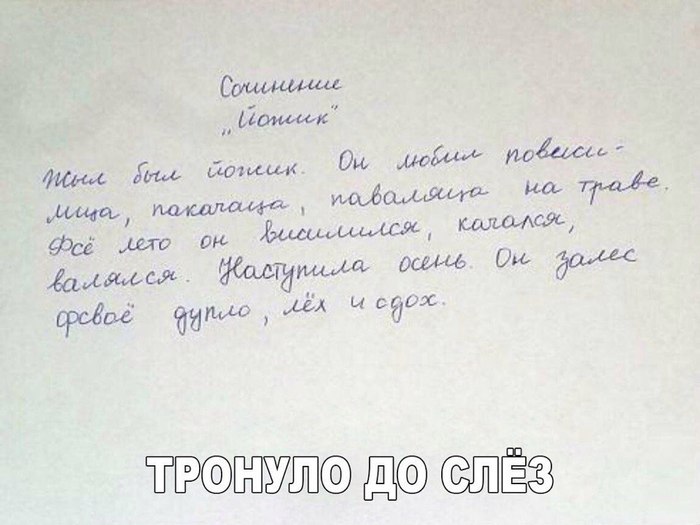 Сочинение
„Йожик"
Жыл был йожик. Он любил повыси-
лица, пакачаца, паваляца на траве.
Фсё лето он висилился, качался,
валялся. Наступила осень. Он залес
фсвоё дупло, лёх и сдох.
ТРОНУЛО ДО СЛЁЗ